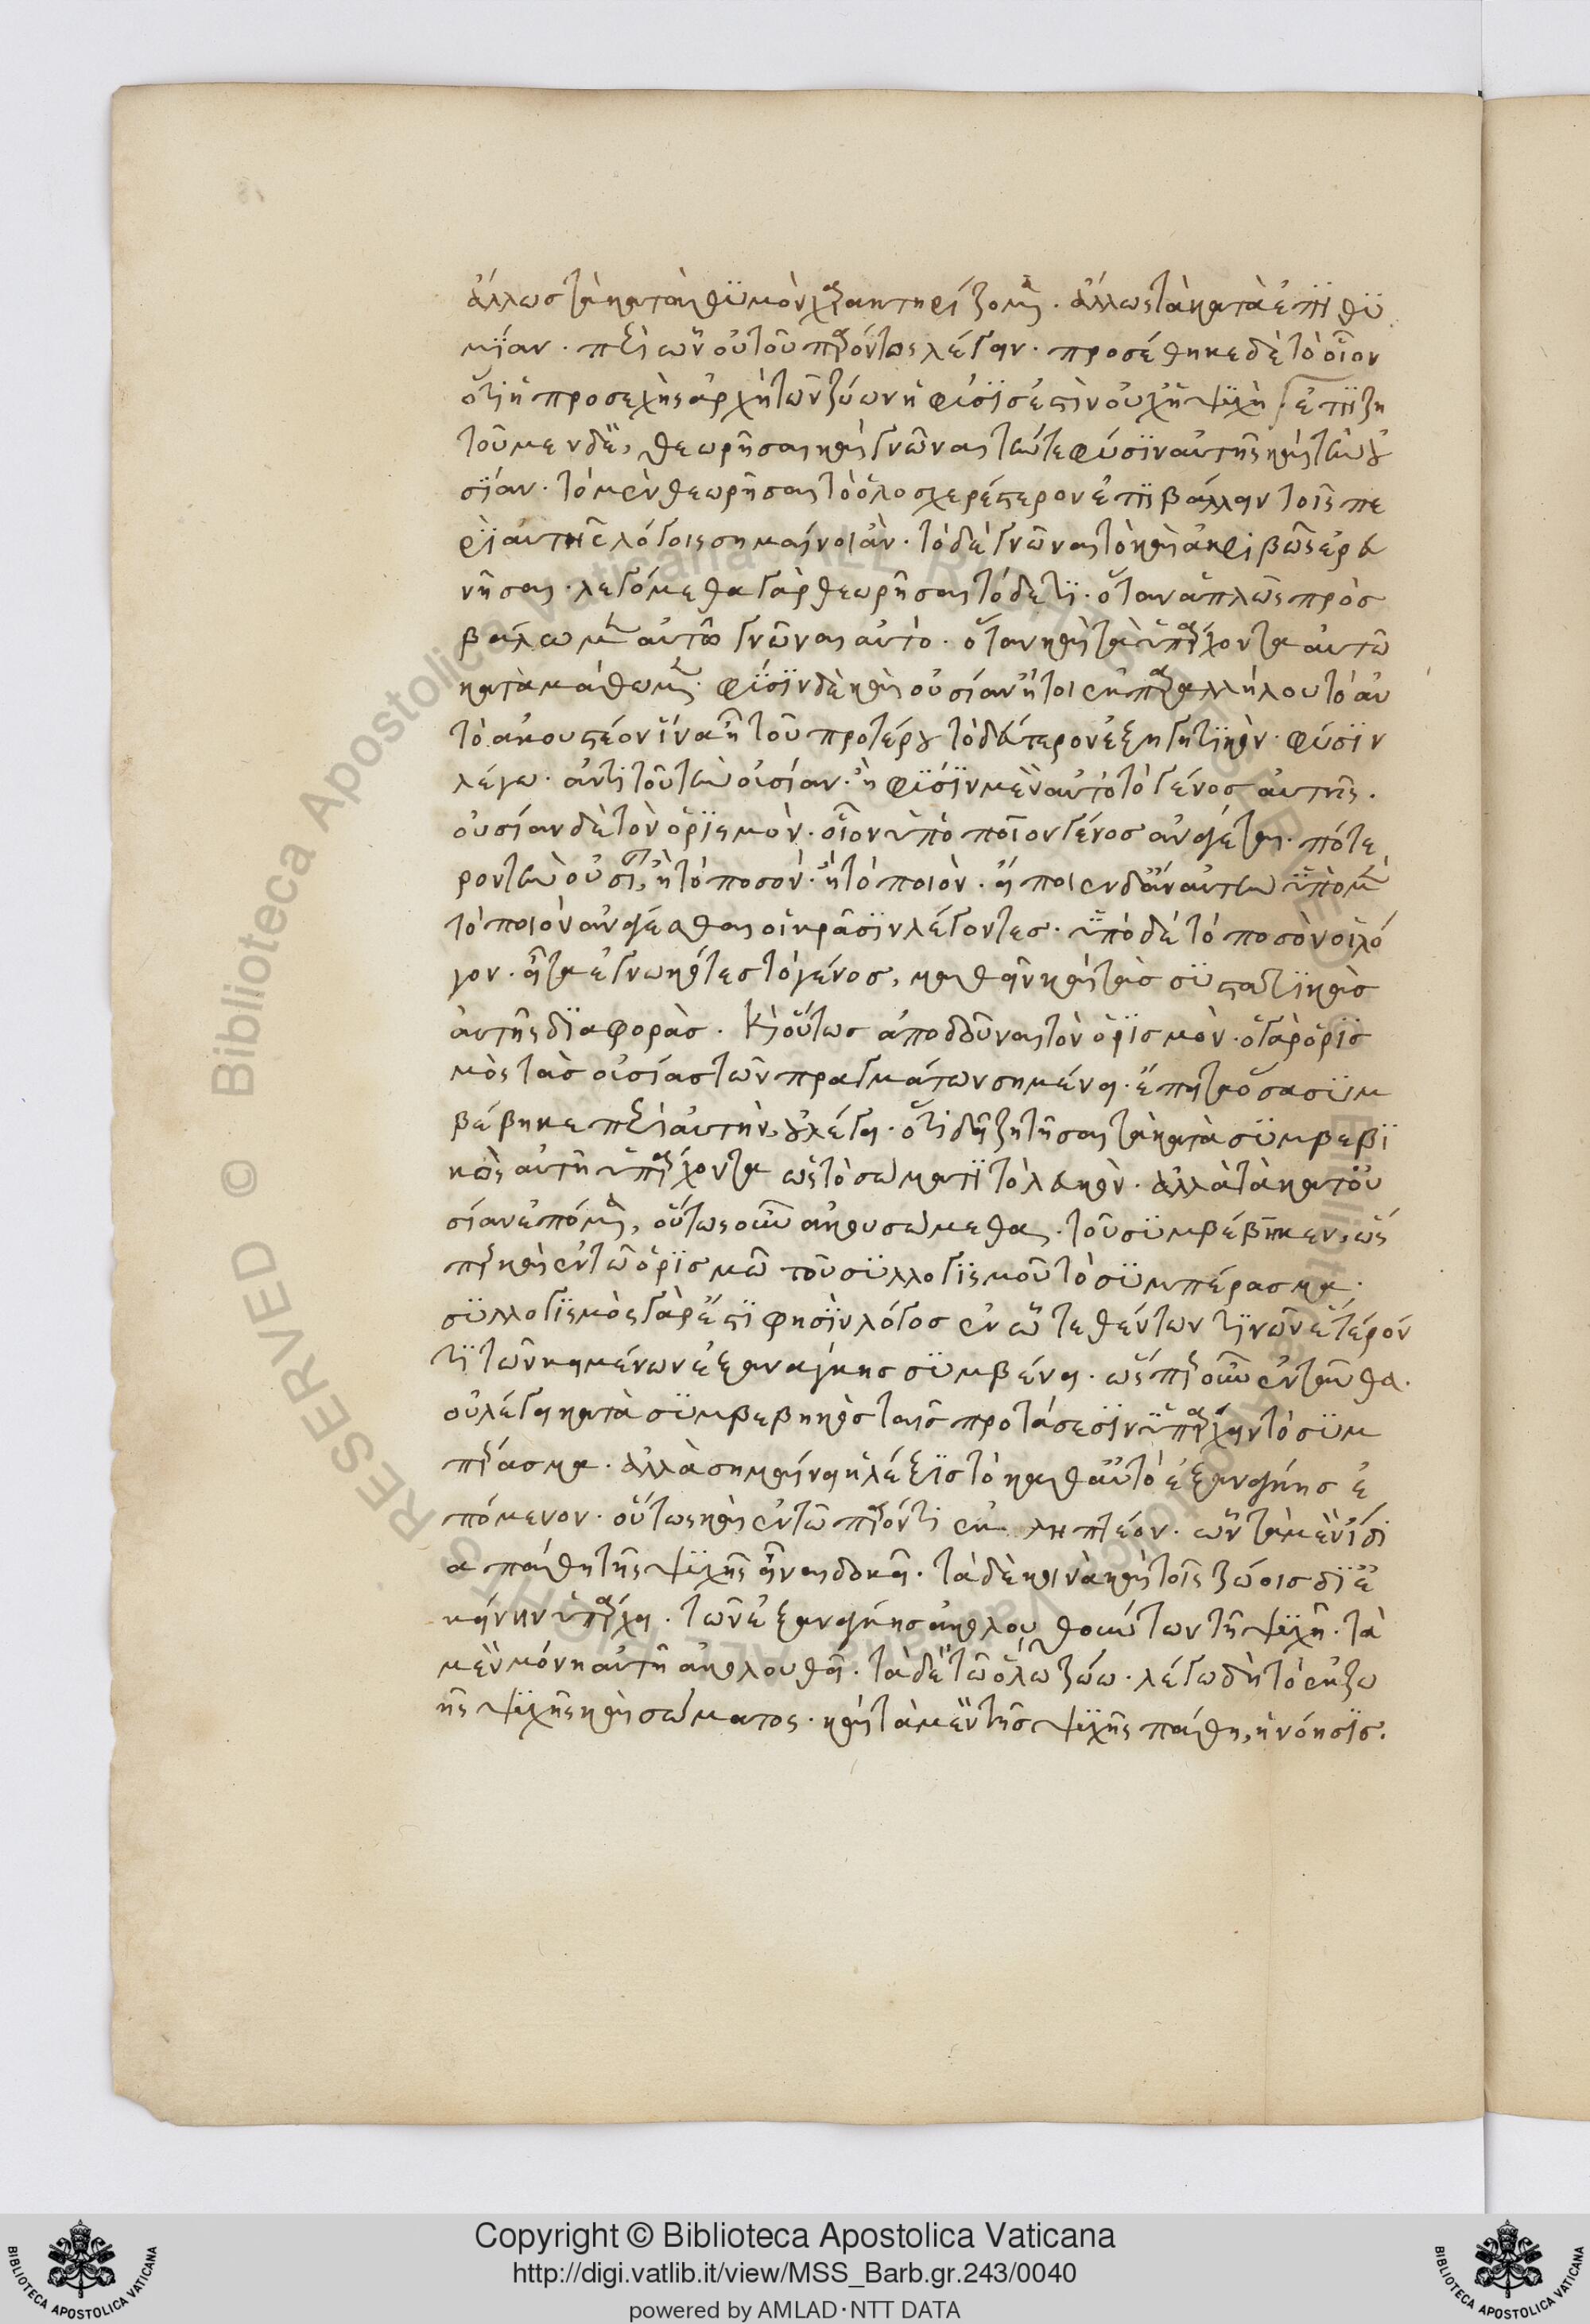 ἄλλως τὰ κατὰ θϋμὸν χαρακτηρίζομεν . ἄλλως τὰ κατὰ ἐπϊ θϋ
μΐαν . περὶ ὧν οὐ τοῦ παρόντος λέγειν . προσέθηκε δὲ τὸ οἷον
ὅτι ἡ προσεχὴς ἀρχὴ τῶν ζώων ἡ φύσϊς ἐστὶν οὐχ ἡ ψϋχὴ ἐπϊζη
τοῦμεν δὲ, θεωρῆσαι καὶ γνῶναι τήν τε φύσϊν αὐτῆς καὶ τὴν οὐ
σΐαν . τὸ μὲν θεωρῆσαι τὸ ὁλοσχερέστερον ἐπϊβάλλειν τοῖς πε
ρὶ αὐτῆς λόγοις σημαίνοι ἂν . τὸ δὲ γνῶναι τὸ καὶ ἀκριβῶς ἐρευ
νῆσαι . λεγόμεθα γὰρ θεωρῆσαι τόδε τϊ . ὅταν ἁπλῶς προσ
βάλωμεν αὐτῶ γνῶναι αὐτὸ . ὅταν καὶ τὰ ὑπάρχοντα αὐτῶ
καταμάθωμεν . φΰσϊν δὲ καὶ οὐσίαν ἤτοι ἐκ παραλλήλου τὸ αὐ
τὸ ἀκουστέον ἵνα ᾖ τοῦ προτέρου τὸ δεύτερον ἐξηγητϊκὸν . φύσϊν
λέγω . ἀντὶ τοῦ τὴν οὐσίαν . ἢ φΰσϊν μὲν αὐτὸ τὸ γένος αὐτῆς .
οὐσίαν δὲ τὸν ὁρϊσμὸν . οἷον ὑπὸ ποῖον γένος ἀνάγεται . πότε
ρον τὴν οὐσίαν, ἢ τὸ ποσὸν . ἢ τὸ ποιὸν .
τὸ ποιὸν ἀνάγεσθαι οἱ κρᾶσϊν λέγοντες . ὑπὸ δὲ τὸ ποσὸν οἱ λό
γον . εἶτα ἐγνωκότες τὸ γένος, μαθεῖν καὶ τὰς συστατϊκὰς
αὐτῆς δϊαφορὰς . καὶ οὕτως ἀποδοῦναι τὸν ὁρϊσμὸν . ὁ γὰρ ὁρϊσ
μὸς τὰς οὐσίας τῶν πραγμάτων σημαίνει . ἔπειτα ὅσα σϋμ
βέβηκε περὶ αὐτὴν, οὐ λέγει . ὅτι δεῖ ζητῆσαι τὰ κατὰ σϋμβεβϊ
κὸς αὐτῆ ὑπάρχοντα ὡς τὸ σώματϊ τὸ λευκὸν . ἀλλὰ τὰ κατ οὐ
σίαν ἑπόμενα, οὕτως οὖν ἀκουσώμεθα . τοῦ σϋμβέβηκεν, ὡς
περ καὶ ἐν τῶ ὁρϊσμῶ τοῦ σϋλλογϊσμοῦ τὸ σϋμπέρασμα .
σϋλλογϊσμὸς γάρ ἐστϊ φησϊν λόγος ἐν ὧ τεθέντων τϊνῶν ἕτερόν
τϊ τῶν κειμένων ἐξ ἀνάγκης σϋμβαίνει . ὥσπερ οὖν ἐνταῦθα .
οὐ λέγει κατὰ σϋμβεβηκὸς ταῖς προτάσεσϊν ὑπάρχειν τὸ σϋμ
πέρασμα . ἀλλὰ σημαίνει ἡ λέξϊς τὸ καθ αὑτὸ ἐξ ἀνάγκης ἑ
πόμενον . οὕτως καὶ ἐν τῶ παρόντι ἐκληπτέον . ὧν τὰ μὲν ἴδι
α πάθη τῆς ψϋχῆς εἶναι δοκεῖ . τὰ δὲ κοινὰ καὶ τοῖς ζώοις δϊ ἐ
κείνην ὑπάρχει . τῶν ἐξ ἀνάγκης ἀκολουθούντων τῆ ψϋχῆ . τὰ
μὲν μόνη αὐτῆ ἀκολουθεῖ . τὰ δὲ τῶ ὅλω ζώω . λέγω δὴ τὸ ἐκ ζω
ῆς ψϋχῆς καὶ σώματος . καὶ τὰ μὲν τῆς ψϋχῆς πάθη, ἡ νόησϊς .
Copyright © Biblioteca Apostolica Vaticana
http://digi.vatlib.it/view/MSS_Barb.gr.243/0040
powered by AMLAD·NTT DATA